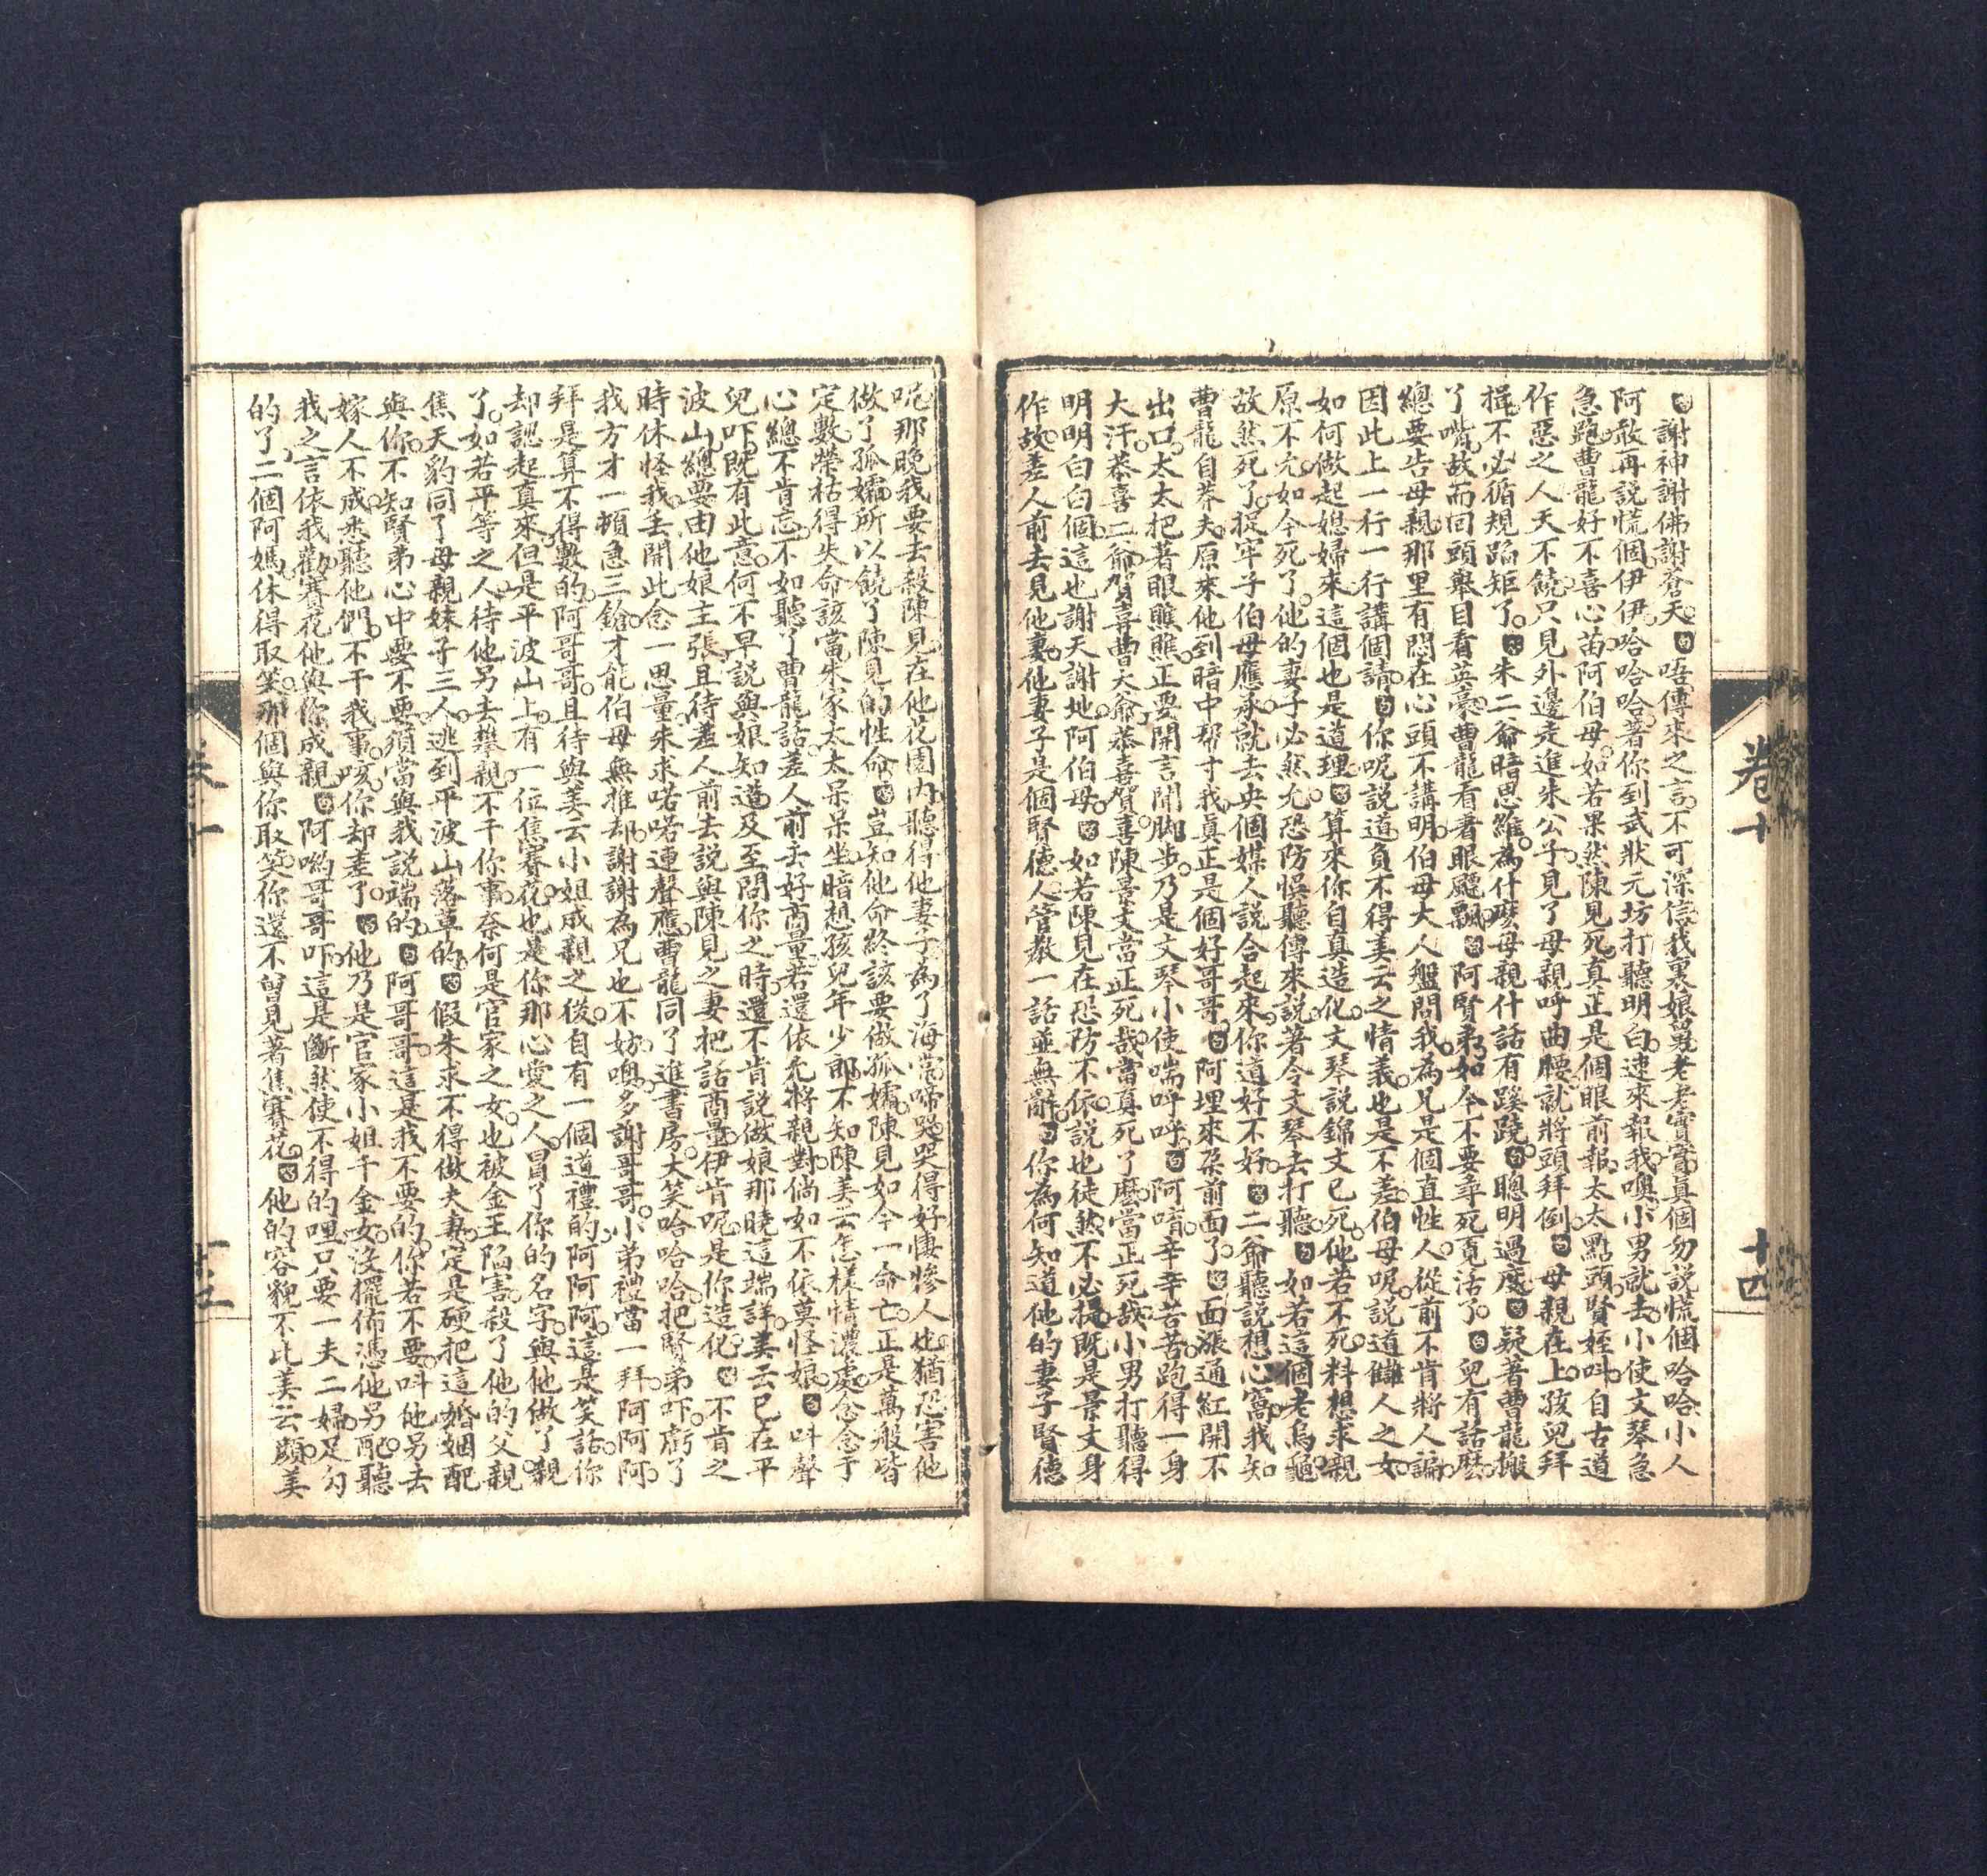 謝神謝佛謝蒼天唔傳來之言不可深信我裏娘舅老老實實真個勿説慌個哈哈小人
阿敢再説慌個伊伊哈哈哈著你到武狀元坊打聽明白速來報我噢小男就去小使文琴急
急跑曹龍好不喜心苗阿伯母如若果然陳見死真正是個眼前報太太點頭賢姪呌自古道
作惡之人天不饒只見外邊走進朱公子見了母親呼曲腰就將頭拜倒母親在上孩兒拜
揖不必循規蹈矩了朱二爺暗思維為什麼母親什話有蹊蹺聰明過度疑著曹龍搬
了嘴故而回頭舉目看英豪曹龍看著眼飃飄阿賢弟如今不要尋死覓活了兒有話麽
總要告母親那里有悶在心頭不講明伯母大人盤問我為兄是個直性人從前不肯將人謆
因此上一行一行講個請你呢説道負不得美云之情義也是不差伯母呢説道讎人之女
如何做起媳婦來這個也是道理算來你自真造化文琴說錦文已死他若不死料想求親
原不允如今死了他的妻子必然允恐防悞聽傳來説著令文琴去打聽如若這個老烏龜
故然死了捉牢子伯母應承就去央個媒人説合起來你道好不好二爺聽說想心窩我知
曹龍自莽夫原來他到暗中帮寸我真正是個好哥哥阿埋來朶前面了面漲通紅開不
出口太太把著眼瞧瞧正要開言閙脚步乃是文琴小使喘呼呼阿唷辛辛苦苦跑得一身
大汗恭喜二爺賀喜曹大爺恭喜賀喜陳景文當正死哉當真死了麽當正死哉小男打聽得
明明白白個這也謝天謝地阿伯母如若陳見在恐防不依說也徒然不必提既是景文身
作故差人前去見他妻他妻子是個賢德人管教一話並無辭你為何知道他的妻子賢德
呢那晚我要去殺陳見在他花園内聽得他妻子為了海棠啼哭哭得好悽慘人也猶恐害他
做了孤孀所以饒了陳見的性命豈知他命終該要做孤孀陳見如今一命亡正是萬般皆
定數榮枯得失命該當朱家太太呆呆坐暗想孩兒年少郎不知陳美云怎樣情濃處念念于
心總不肯忘不如聽了曹龍話差人前去好商量若還依允將親對倘如不依莫怪娘呌聲
兒吓既有此意何不早説與娘知道及至問你之時還不肯説做娘那曉這端詳美云已在平
波山總要由他娘主張且待差人前去説與陳見之妻把話商量伊肯呢是你造化不肯之
時休怪我丟開此念一思量朱求喏喏連聲應曹龍同了進書房大笑哈哈哈把賢弟吓虧了
我方才一頓急三鎗才能伯母無推却謝謝為兄也不妨噢多謝哥哥小弟禮當一拜阿阿阿
拜是算不得數的阿哥哥且待與美云小姐成親之後自有一個道禮的阿阿阿這是笑話你
却認起真來但是平波山上有一位焦賽花也是你那心愛之人冒了你的名字與他做了親
了如若平等之人待他另去攀親不干你事奈何是官家之女也被金王陷害殺了他的父親
焦天豹同了母親妹子三人逃到平波山落草的假朱求不得做夫妻定是硬把這婚姻配
與你不知賢弟心中要不要須當與我説端的阿哥哥這是我不要的你若不要呌他另去
嫁人不成悉聽他們不干我事咳你却差了他乃是官家小姐千金女沒擺佈憑他另配聽
我之言依我勸賽花他與你成親阿喲哥哥吓這是斷然使不得的哩只要一夫二婦足勾
的了二個阿媽休得取笑那個與你取笑你還不曾見著焦賽花他的容貌不比美云顔美
卷十
十四